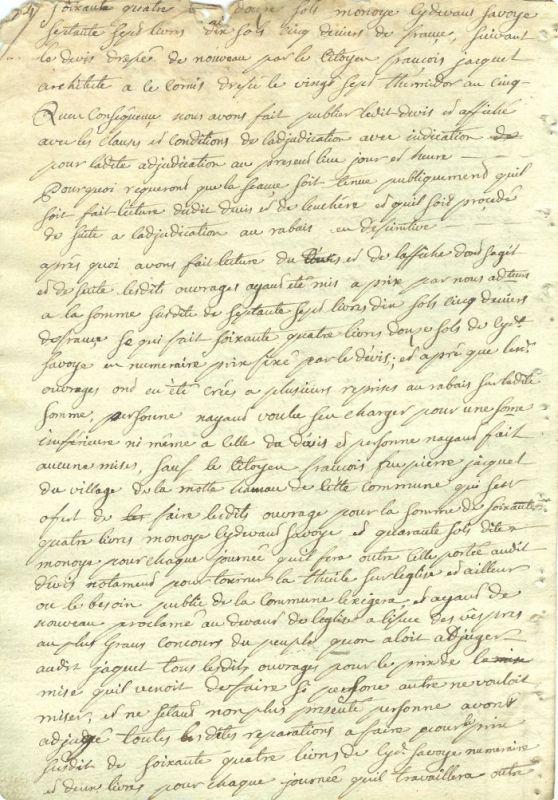 soixante quatre livres douze sols monoye cydevant savoye
septante sept livres dix sols cinq deniers de france, suivant
le devis dressé de nouveau par le Citoyen francois jaquet
architecte a ce Comis dressé le vingt sept thermidor au cinq
Quen Consequence nous avons fait publier ledit devis et affiché
avec les Clauses et Conditions de ladjudication avec indication de
pour ladite adjudication au present lieu jour et heure
Pourquoi requerons que la seance soit tenue publiquement quil
soit fait lecture dudit devis et de lenchere et quil soit procedé
de suite a ladjudication au rabais en definitive
apres quoi avons fait lecture du devis et de laffiche dont sagit
et de suite lesdits ouvrages ayant eté mis a prix par nous
a la somme susdite de septante sept livres dix sols cinq deniers
de france ce qui fait soixante quatre livres douze sols de cydt
savoye en numeraire prix fixé par le devis, et apré que lesds
ouvrages ont eu eté criés a plusieurs reprises au rabais sur ladite
somme, personne nayant voulu sen charger pour une some
inferieure ni même a celle du devis et personne nayant fait
aucune mises, sauf le Citoyen francois jaquet
du village de la motte hamau de cette commune qui sest
offert de faire lesdits ouvrage pour la somme de soixante
quatre livres monoye cydevant savoye et quarante sols dite
monoye pour chaque journée quil fera outre celle portée audit
devis notament pour tourner la thuile sur leglise et ailleur
ou le besoin public de la commune lexigera et ayant de
nouveau proclamé au devant de leglise a lissue des vêpres
au plus grans concours du peuple quon aloit adjuger
audit jaquet tous lesdits ouvrages pour le prix de la mise
mise quil venoit de faire si persone autre ne vouloit
miser, et ne setant non plus presenté personne avons
adjugé toutes lesdites reparations a faire pour le prix
susdit de soixante quatre livres de cydt savoye numeraire
et deux livres pour chaque journée quil travaillera outre